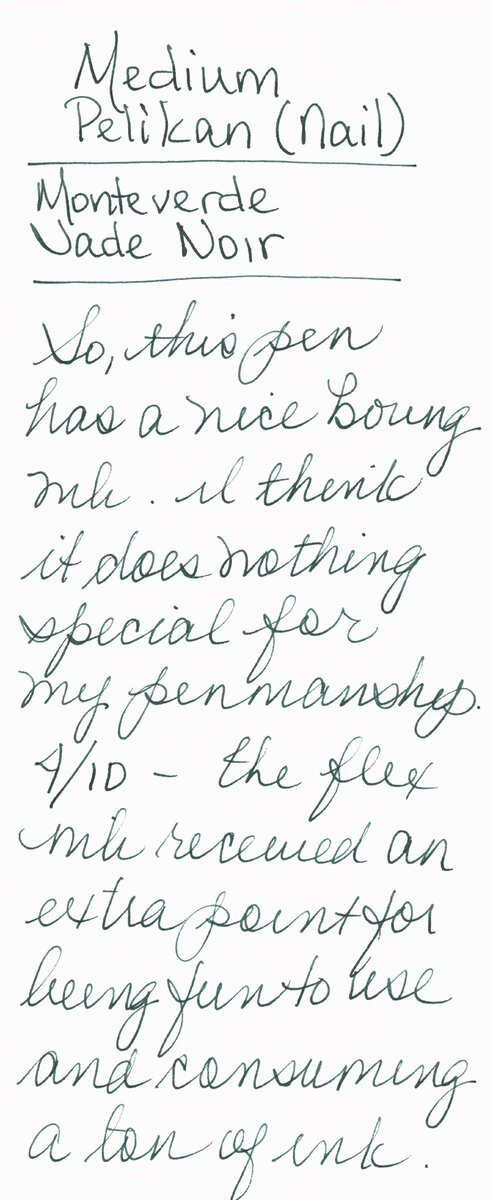 Medium
Pelikan (Nail)
Monteverde
Jade Noir
So, this pen
has a nice boring
nib. I think
it does nothing
special for
my penmanship.
4/10 - the flex
nib received an
extra point for
being fun to use
and consuming
a ton of ink.